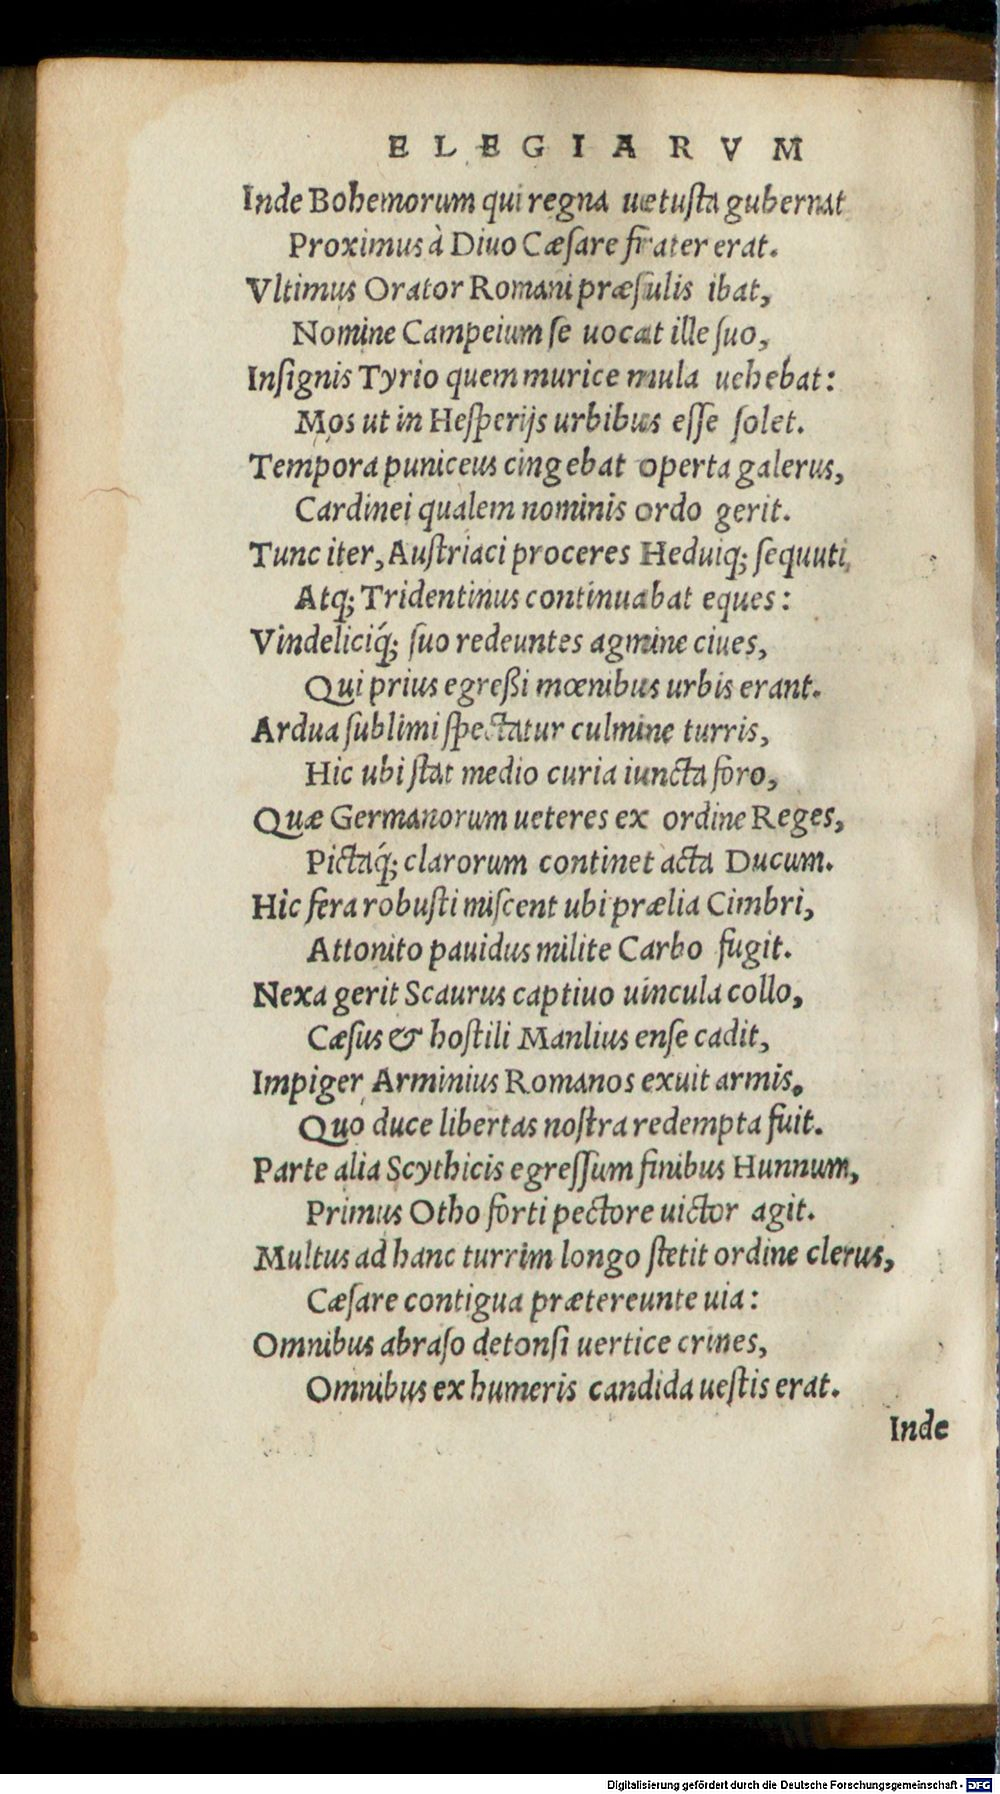 ELEGIARVM
Inde Bohemorum qui regna uetusta gubernat
Proximus à Diuo Cæſare frater erat.
Vltimus Orator Romani præſulis ibat,
Nomine Campeium ſe uocat ille ſuo,
Inſignis Tyrio quem murice mula uehebat:
Mos ut in Heſperijs urbibus eſſe ſolet.
Tempora puniceus cingebat operta galerus,
Cardinei qualem nominis ordo gerit.
Tunc iter, Auſtriaci proceres Heduiq; ſequuti,
Atq; Tridentinus continuabat eques:
Vindeliciq́; ſuo redeuntes agmine ciues,
Qui prius egreßi mœnibus urbis erant.
Ardua ſublimi ſpectatur culmine turris,
Hic ubi ſtat medio curia iuncta foro,
Quæ Germanorum ueteres ex ordine Reges,
Pictaq́; clarorum continet acta Ducum.
Hic fera robuſti miſcent ubi prælia Cimbri,
Attonito pauidus milite Carbo fugit.
Nexa gerit Scaurus captiuo uincula collo,
Cæſus & hoſtili Manlius enſe cadit,
Impiger Arminius Romanos exuit armis.
Quo duce libertas noſtra redempta fuit.
Parte alia Scythicis egreſſum finibus Hunnum,
Primus Otho forti pectore uictor agit.
Multus ad hanc turrim longo ſtetit ordine clerus,
Cæſare contigua prætereunte uia:
Omnibus abraſo detonſi uertice crines,
Omnibus ex humeris candida ueſtis erat.
Inde
Digitalisierung gefördert durch die Deutsche Forschungsgemeinschaft - DFG